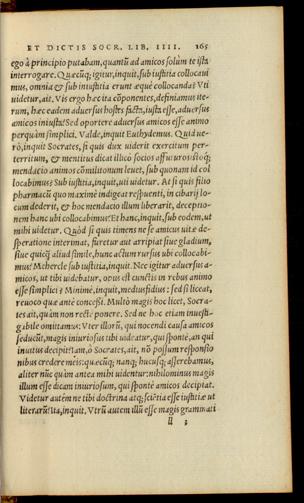 ET DICTIS SOCR. LIB. IIII. 165
ego à principio putabam, quantũ ad amicos solum te ista
interrogare. Quæcũq; igitur, inquit, sub iustitia collocaui
mus, omnia & sub iniustitia erunt æquè collocanda? Vti
uidetur, ait. Vis ergo hæc ita cõponentes, definiamus ite-
rum, hæc eadem aduersus hostes facta, iusta esse, aduersus
amicos iniusta? Sed oportere aduersus amicos esse animo
perquàm simplici. Valde, inquit Euthydemus. Quid ue-
rò, inquit Socrates, si quis dux uiderit exercitum per-
territum, & mentitus dicat illico socios affuturos: istoq;
mendacio animos cõmilitonum leuet, sub quonam id col
locabimus? Sub iustitia, inquit, uti uidetur. At si quis filio
pharmacũ quo maximè indigeat respuenti, in cibarijs lo-
cum dederit, & hoc mendacio illum liberarit, deceptio-
nem hanc ubi collocabimus? Et hanc, inquit, sub eodem, ut
mihi uidetur. Quòd si quis timens ne se amicus uitæ de-
speratione interimat, furetur aut arripiat siue gladium,
siue quicq̃ aliud simile, hunc actum rursus ubi collocabi-
mus? Mehercle sub iustitia, inquit. Nec igitur aduersus a-
micos, ut tibi uidebatur, opus est cunctis in rebus animo
esse simplici? Minimè, inquit, mediusfidius: sed si liceat,
reuoco quæ antè concessi. Multò magis hoc licet, Socra-
tes ait, quàm non rectè ponere. Sed ne hoc etiam inuesti-
gabile omittamus: Vter illorũ, qui nocendi causa amicos
seducũt, magis iniuriosus tibi uideatur, qui spontè, an qui
inuitus decipit? Iam, ò Socrates, ait, nõ possum responsio
nibus credere meis: quæcũq; nanq; hucusq; asserebamus,
aliter nũc quàm antea mihi uidentur: nihilominus magis
illum esse dicam iniuriosum, qui spontè amicos decipiat.
Videtur autẽm ne tibi doctrina atq; sciẽtia esse iustitiæ ut
literarũ? Ita, inquit. Vtrũ autem illũ esse magis grammati
ll 3